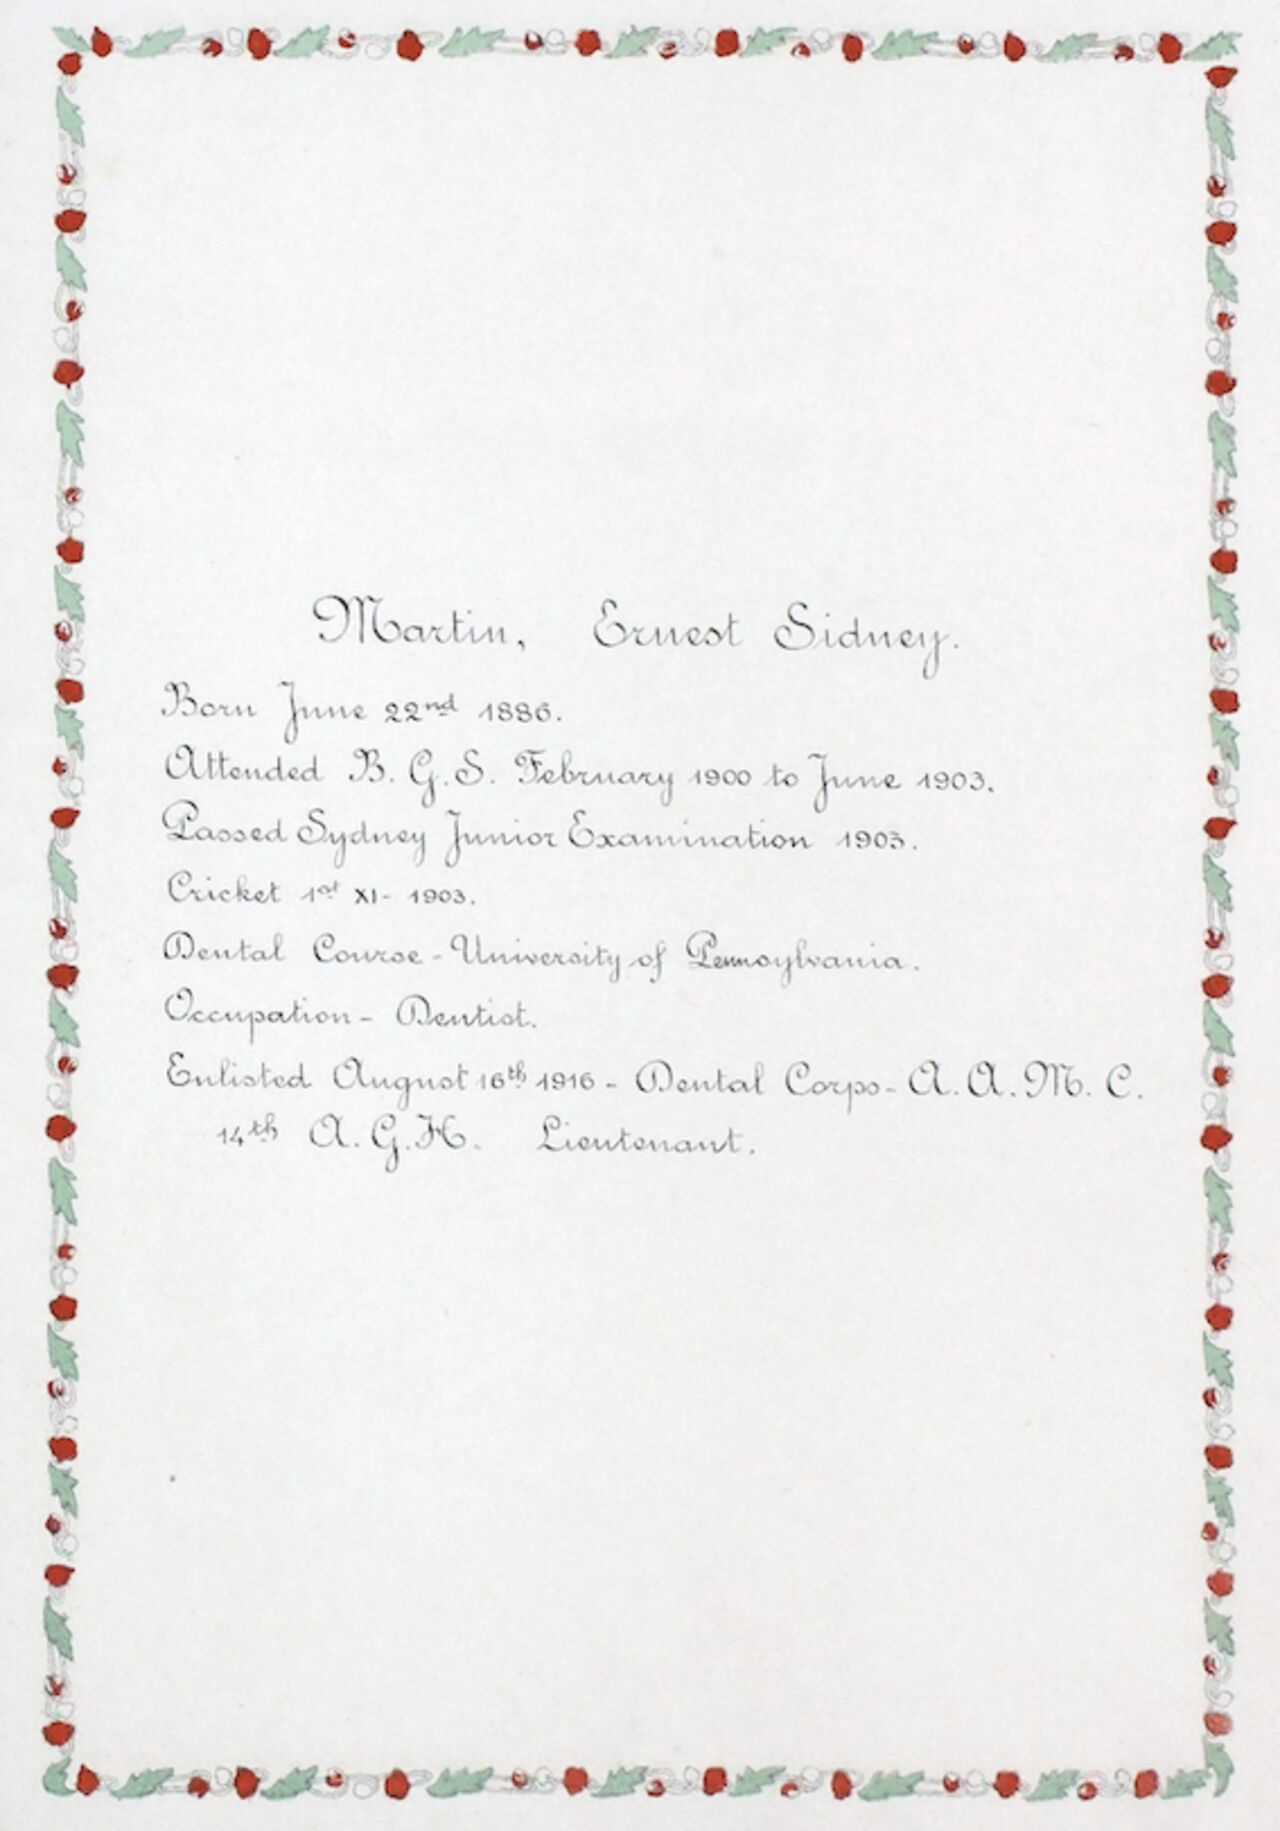 Martin, Ernest Sidney.
Born June 22nd 1886.
Attended B. G. S. February 1900 to June 1903.
Passed Sydney Junior Examination 1903.
Cricket 1st XI - 1903.
Dental Course - University of Pennsylvania.
Occupation - Dentist.
Enlisted August 16th 1916 - Dental Corps - A. A. M. C.
14th A. G. H. Lieutenant.